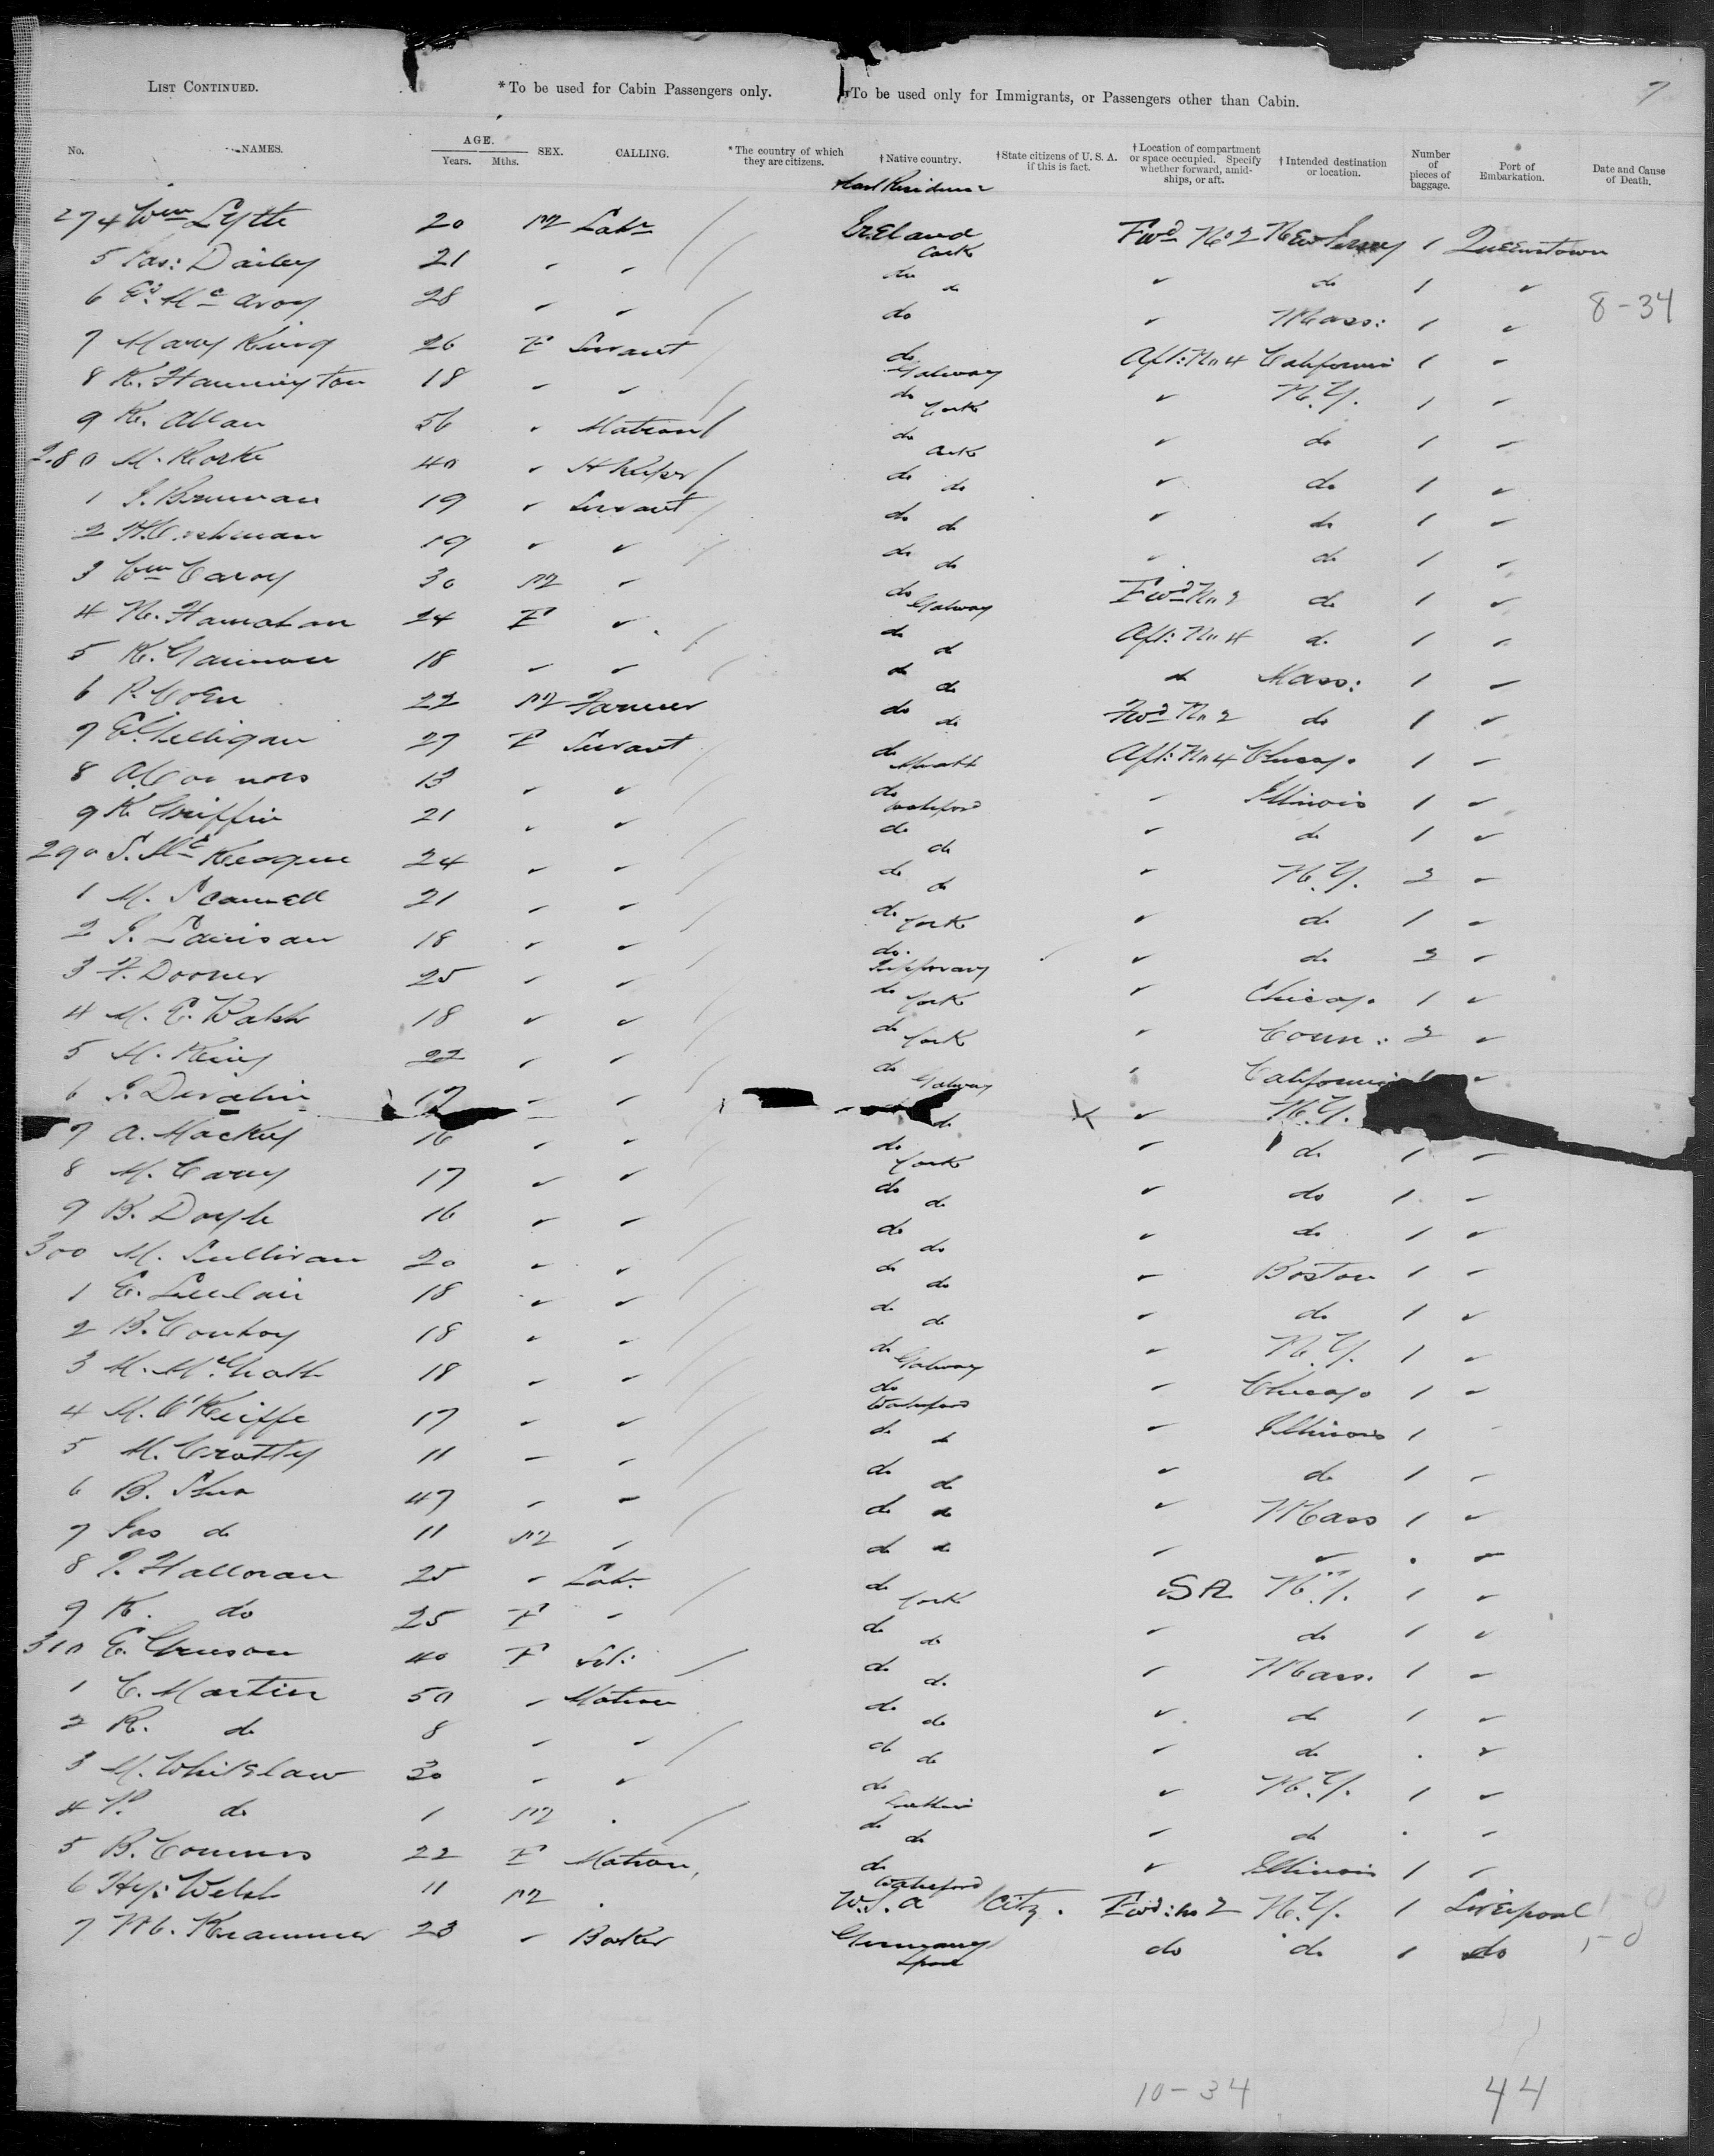 LIST CONTINUED. *To be used for Cabin Passengers only. †To be used only for Immigrants, or Passengers other than Cabin. 7
No. NAMES. AGE. Years. Mths. SEX. CALLING. *The country of which they are citizens. †Native country. †State citizens of U. S. A. if this is fact. †Location of compartment or space occupied. Specify whether forward, amidships, or aft. †Intended destination or location. Number of pieces of baggage. Port of Embarkation. Date and Cause of Death.
Last Residence
274 Wm Lytle 20 M Labr Ireland Cork Fwd No 2 New Jersey 1 Queenstown
5 Jas: Dailey 21 " " do do " do 1 "
6 Ed Mc Avoy 28 " " do " Mass: 1 " 8-34
7 Mary King 26 F Servant do Galway Aft: No 4 California 1 "
8 K. Hannington 18 " " do Cork " N.Y. 1 "
9 K. Allan 56 " Matron do Cork " do 1 "
280 M. Rorke 40 " H Keeper do do " do 1 "
1 J. Brennan 19 " Servant do do " do 1 "
2 H. Cashman 19 " " do do " do 1 "
3 Wm Carey 30 M " do Galway Fwd No 2 do 1 "
4 N. Hanrahan 24 F " do do Aft: No 4 do 1 "
5 K. Gannon 18 " " do do do Mass: 1 "
6 P. Coen 22 M Farmer do do Fwd No 2 do 1 "
7 E. Gilligan 27 F Servant do Meath Aft: No 4 Chicago 1 "
8 A. Connors 13 " " do Waterford " Illinois 1 "
9 K. Griffin 21 " " do do " do 1 "
290 S. Mc Keague 24 " " do do " N.Y. 2 "
1 M. Scannell 21 " " do Cork " do 1 "
2 J. 18 " " do. Tipperary " do 2 "
3 F. Dooner 25 " " do Cork " Chicago 1 "
4 M. E. Walsh 18 " " do Cork " Conn: 2 "
5 M. King 22 " " do Galway " California 1 "
6 J. Devalin 17 " " do " N.Y.
7 A. Mackey 16 " " do Cork " do 1 "
8 M. Carey 17 " " do do " do 1 "
9 B. Doyle 16 " " do do " do 1 "
300 M. Sullivan 20 " " do do " Boston 1 "
1 E. 18 " " do do " do 1 "
2 B. Conboy 18 " " do Galway " N.Y. 1 "
3 M. McGrath 18 " " do Waterford " Chicago 1 "
4 M. O'Keiffe 17 " " do do " Illinois 1 "
5 M. Crotty 11 " " do do " do 1 "
6 B. Shea 47 " " do do " Mass 1 "
7 Jas do 11 M " do do " " . "
8 T. Halloran 25 " Labr do Cork SA N.Y. 1 "
9 K. do 25 F " do do " do 1 "
310 E. 40 F do do " Mass. 1 "
1 C. Martin 50 " Matron do do " do 1 "
2 R. do 8 " " do do " do . "
3 M. Whitelaw 30 " " do " N.Y. 1 "
4 do 1 M . do do " do . "
5 B. Connors 22 F Matron, do Waterford " Illinois 1 "
6 Hy: Welsh 11 M . U.S.A Citz. Fwd: No 2 N.Y. 1 Liverpool
7 M. Krammer 23 " Baker Germany Lpool do do 1 do
10-34 44